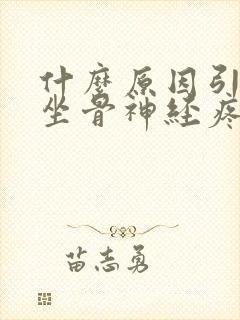 什麽原因引
坐骨神経疼
苗志勇